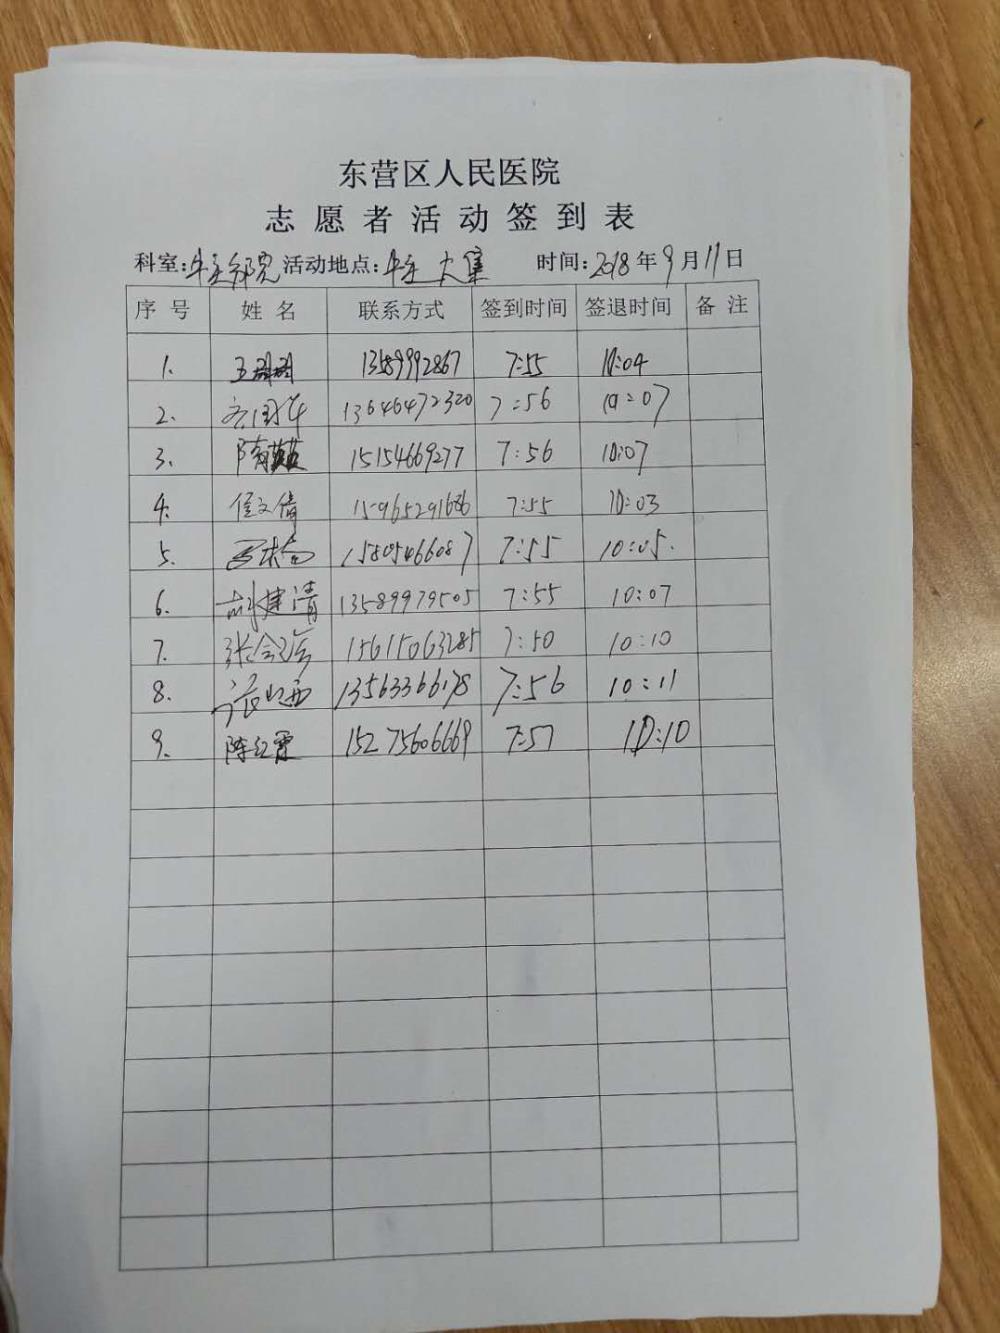 东营区人民医院
志愿者活动签到表
科室: 活动地点: 大集 时间:2018年9月11日
序号 姓名 联系方式 签到时间 签退时间 备注
1. 王 13589992867 7:55 10:04
2. 国华 13646472320 7:56 10:07
3. 15154669277 7:56 10:07
4. 侯文倩 15965291686 7:55 10:03
5. 15805466087 7:55 10:05.
6. 建清 13589979505 7:55 10:07
7. 张 15615063285 7:50 10:10
8. 13563366178 7:56 10:11
9. 陈红霞 15275606669 7:57 10:10